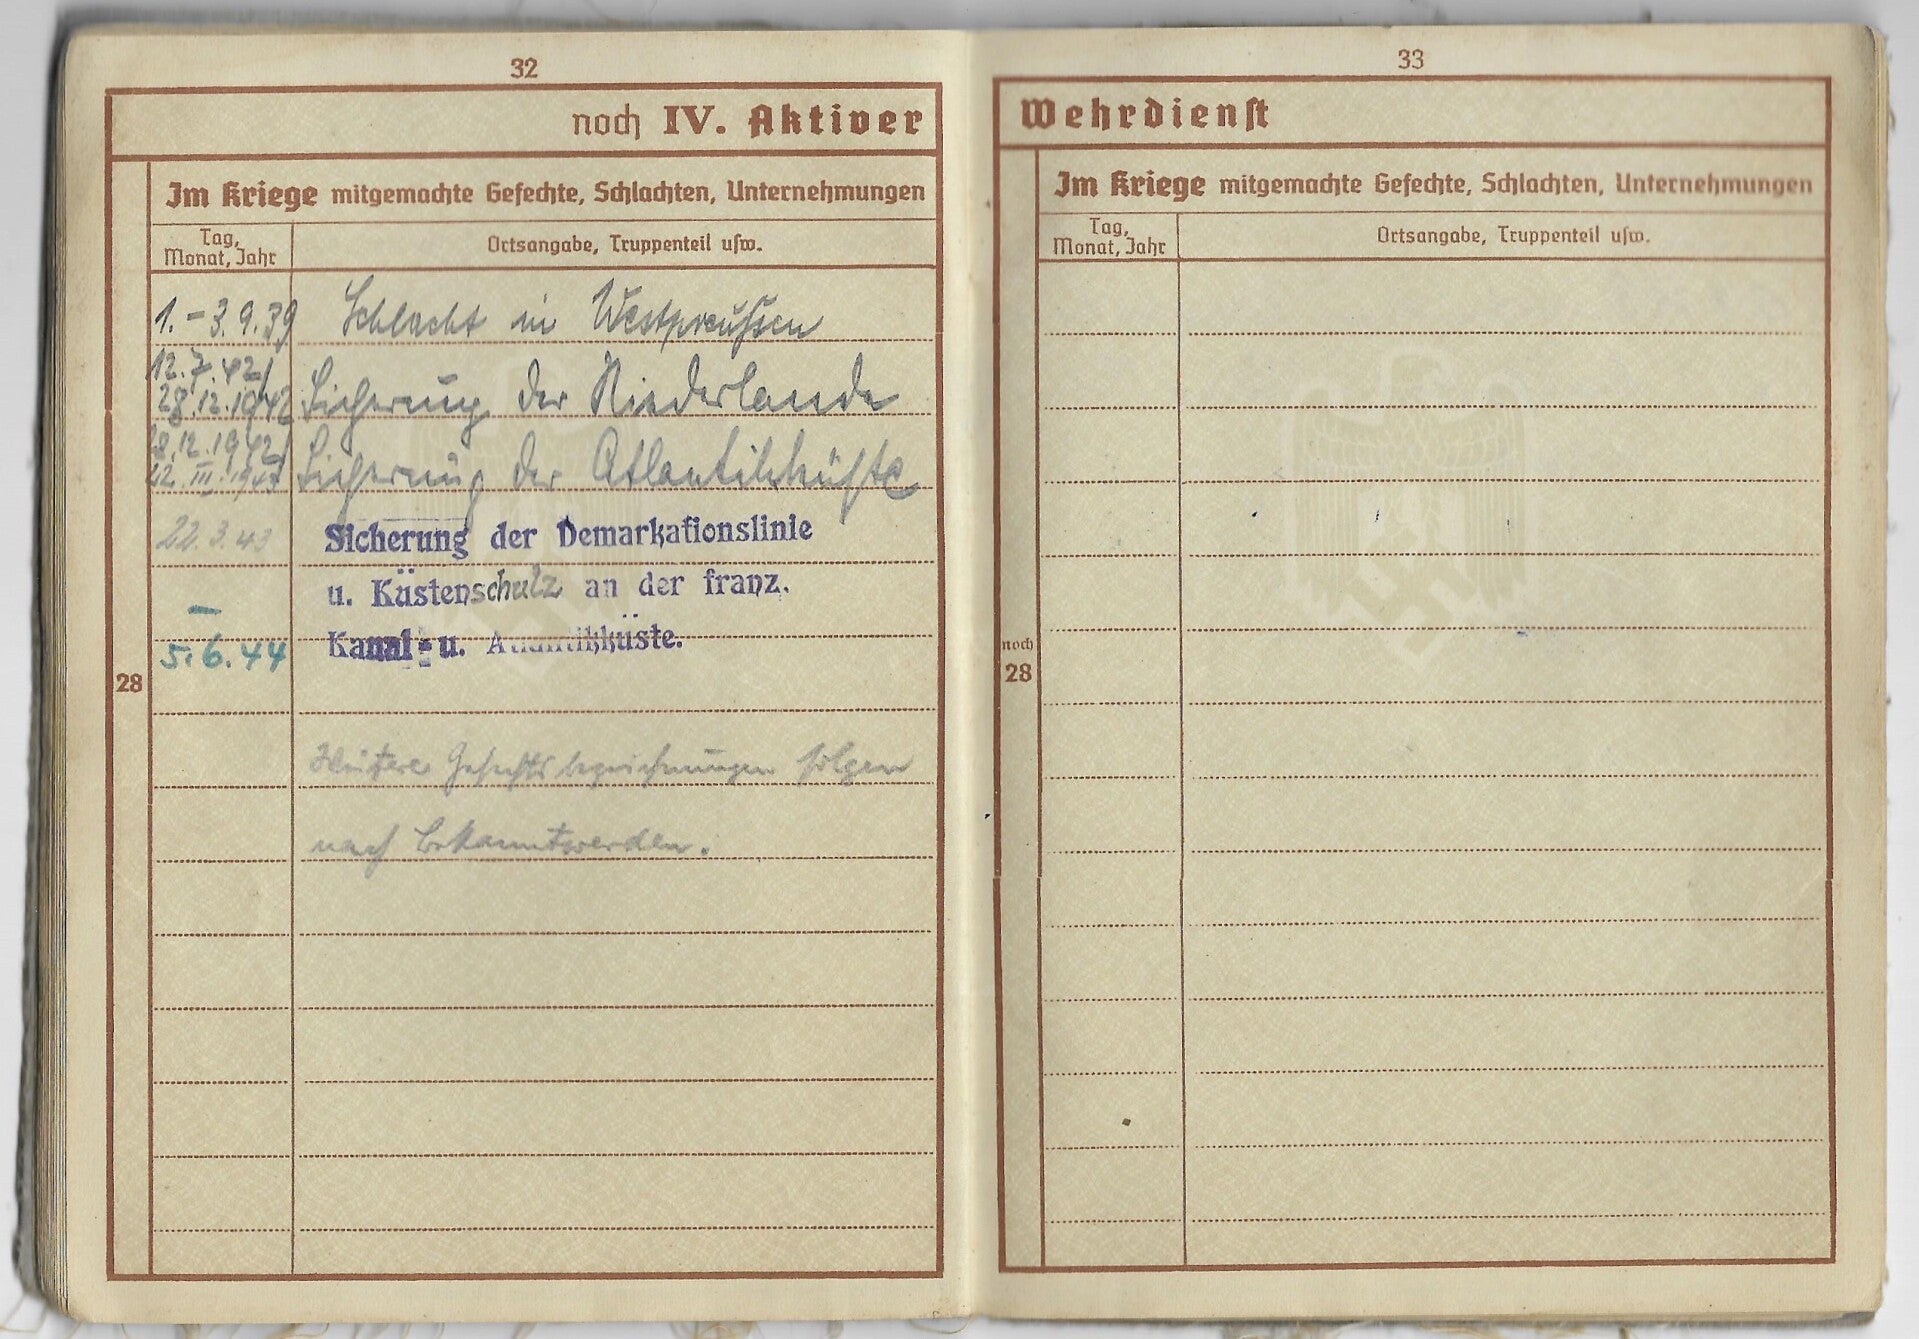 32
noch IV. Aktiver
Im Kriege mitgemachte Gefechte, Schlachten, Unternehmungen
Tag, Monat, Jahr
Ortsangabe, Truppenteil usw.
1.-3.9.39 Schlacht in Westpreußen
12.7.42/
28.12.1942 Sicherung der Niederlande
28.12.1942/
22.III.1943 Sicherung der Atlantikküste
22.3.43 Sicherung der Demarkationslinie
u. Küstenschutz an der franz.
–
5.6.44 Kanal- u. Atlantikküste.
28
Weitere Gefechtsbezeichnungen folgen
nach Bekanntwerden.
33
Wehrdienst
Im Kriege mitgemachte Gefechte, Schlachten, Unternehmungen
Tag, Monat, Jahr
Ortsangabe, Truppenteil usw.
noch
28